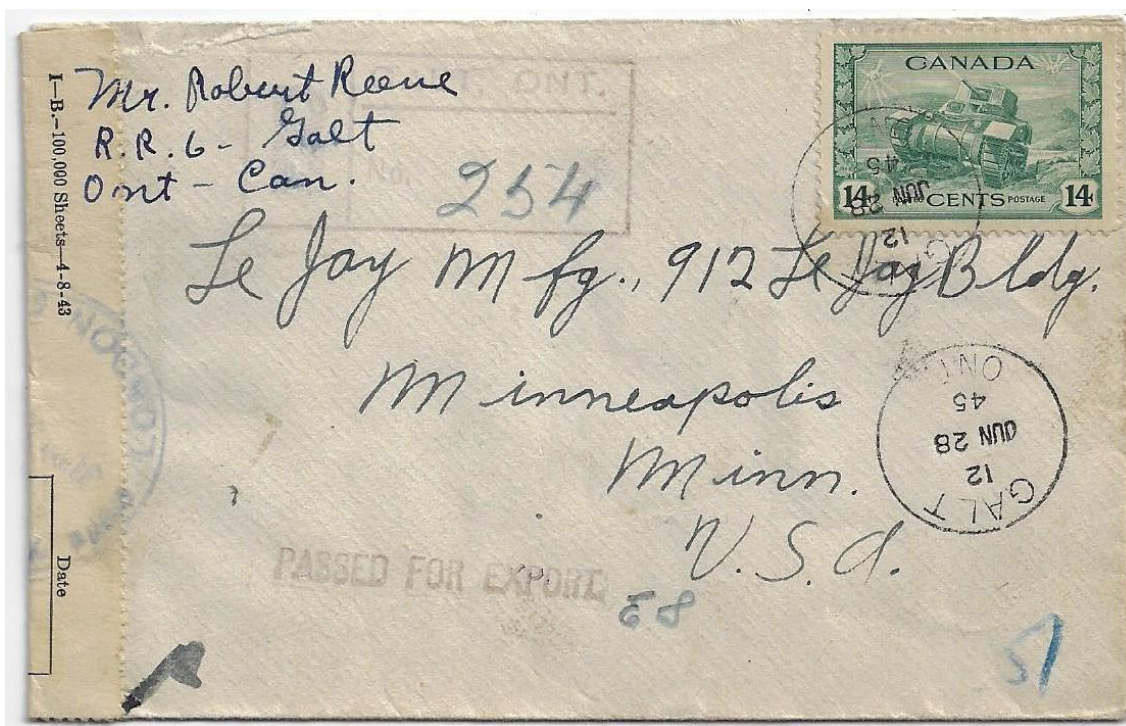 I—B.—100,000 Sheets—4-8-43
Date
Mr. Robert Reene
R.R. 6 - Galt
Ont - Can.
ONT.
No.
254
CANADA
14 CENTS 14
POSTAGE
12
JUN 28
45
ONT
Le Jay Mfg., 912 Le Jay Bldg.
Minneapolis
Minn.
U.S.A.
GALT
12
JUN 28
45
ONT
LONDON
PASSED FOR EXPORT.
E8
51